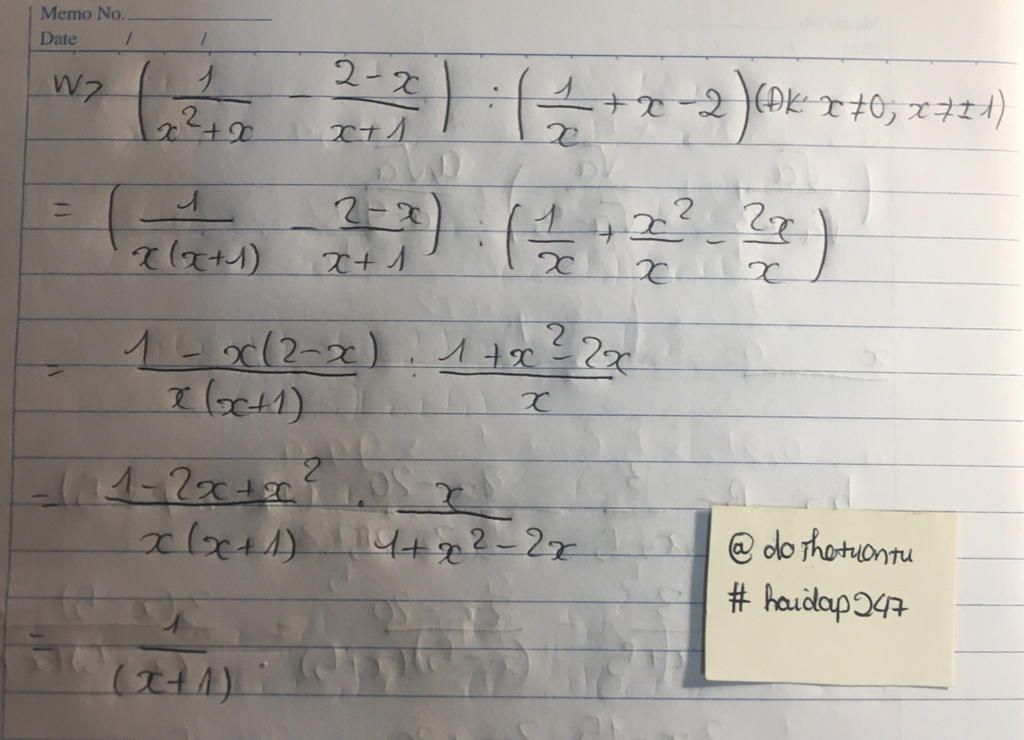 Memo No.
Date / /
W> (1/(x²+x) - (2-x)/(x+1)) : (1/x + x - 2) (ĐK: x≠0; x≠±1)
= (1/(x(x+1)) - (2-x)/(x+1)) : (1/x + x²/x - 2x/x)
= (1 - x(2-x))/(x(x+1)) : (1+x²-2x)/x
= (1-2x+x²)/(x(x+1)) . x/(1+x²-2x)
= 1/(x+1) .
@ dothotuontu
# hoidap247